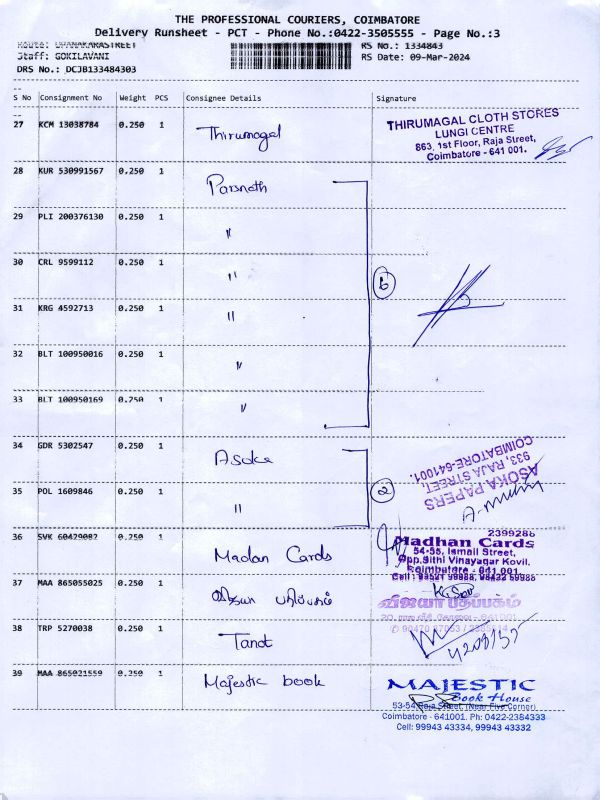 THE PROFESSIONAL COURIERS, COIMBATORE
Delivery Runsheet - PCT - Phone No.:0422-3505555 - Page No.:3
Route: DHANAKARASTREET
Staff: GOKILAVANI
DRS No.: DCJB133484303
RS No.: 1334843
RS Date: 09-Mar-2024
S No Consignment No Weight PCS Consignee Details Signature
27 KCM 13038784 0.250 1 Thirumagal
THIRUMAGAL CLOTH STORES
LUNGI CENTRE
863, 1st Floor, Raja Street,
Coimbatore - 641 001.
28 KUR 530991567 0.250 1 Parsnath
29 PLI 200376130 0.250 1 "
30 CRL 9599112 0.250 1 "
6
31 KRG 4592713 0.250 1 "
32 BLT 100950016 0.250 1 "
33 BLT 100950169 0.250 1 "
34 GDR 5302547 0.250 1 Asoka
35 POL 1609846 0.250 1 "
2
ASOKA PAPERS
933, RAJA STREET,
COIMBATORE-641001.
36 SVK 60429082 0.250 1 Madan Cards
2399286
Madhan Cards
54-55, Ismail Street,
Opp.Sithi Vinayagar Kovil,
Coimbatore - 641 001
37 MAA 865055025 0.250 1 விஜயா பதிப்பகம்
விஜயா பதிப்பகம்
38 TRP 5270038 0.250 1 Tanot
39 MAA 865021559 0.250 1 Majestic book
MAJESTIC
Book House
53-54, Raja Street, (Near Five Corner)
Coimbatore - 641001. Ph: 0422-2384333
Cell: 99943 43334, 99943 43332